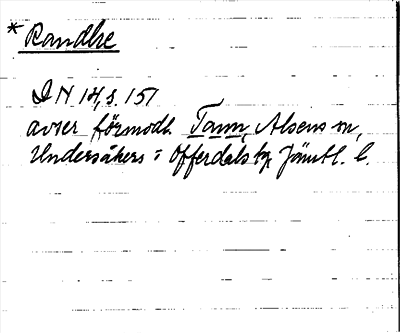 * Randbe
DN 14, s. 151
avser förmodl. Tann, Alsens sn,
Undersåkers o Offerdals tg Jämtl. l.